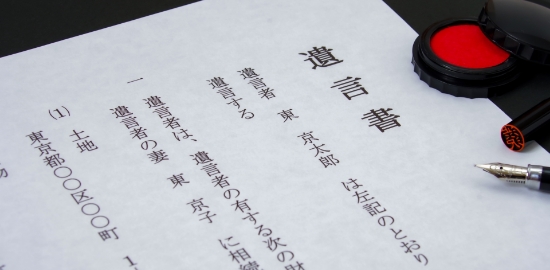 遺言書
遺言者 東 京太郎 は左記のとおり
遺言する
一 遺言者は、遺言者の有する次の財
遺言者の妻 東 京子 に相続
(1) 土地
東京都〇〇区〇〇町 1